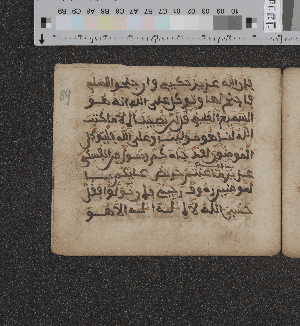 89
فإن الله عزيز حكيم وإن جنحوا للسلم
فاجنح لها وتوكل على الله إنه هو
السميع العليم قل لن يصيبنا إلا ما كتب
الله لنا هو مولينا وعلى الله فليتوكل
المومنون لقد جاءكم رسول من أنفسكم
عزيز عليه ما عنتم حريص عليكم با
لمومنين رءوف رحيم فإن تولوا فقل
حسبي الله لا إله إلا هو